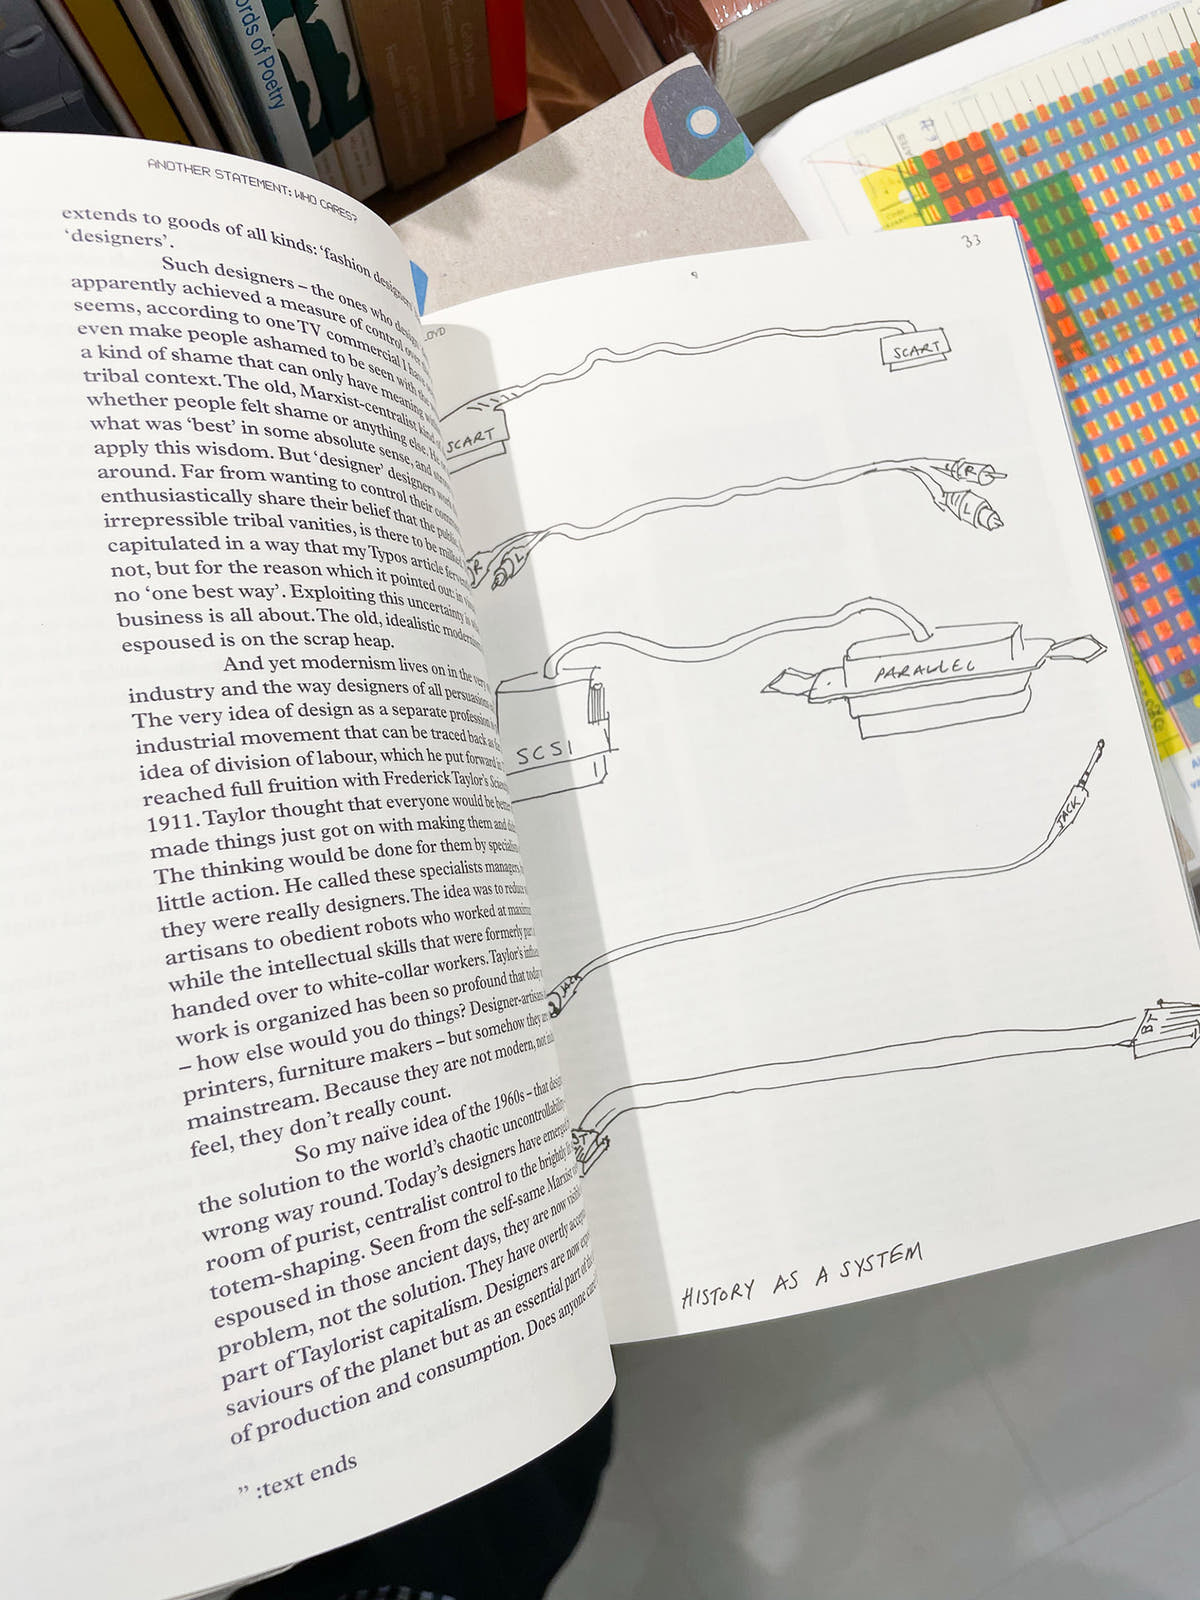 ords of Poetry
ANOTHER STATEMENT: WHO CARES?
extends to goods of all kinds: ‘fashion designers’
‘designers’.
Such designers – the ones who
apparently achieved a measure of control over
seems, according to one TV commercial I have
even make people ashamed to be seen with the
a kind of shame that can only have meaning
tribal context. The old, Marxist-centralist kind
whether people felt shame or anything else. He
what was ‘best’ in some absolute sense, and
apply this wisdom. But ‘designer’ designers work
around. Far from wanting to control their
enthusiastically share their belief that the public
irrepressible tribal vanities, is there to be milked.
capitulated in a way that my Typos article
not, but for the reason which it pointed out: in
no ‘one best way’. Exploiting this uncertainty is
business is all about. The old, idealistic modernism
espoused is on the scrap heap.
And yet modernism lives on in the very
industry and the way designers of all persuasions
The very idea of design as a separate profession
industrial movement that can be traced back as
idea of division of labour, which he put forward in
reached full fruition with Frederick Taylor’s
1911. Taylor thought that everyone would be better
made things just got on with making them and
The thinking would be done for them by specialists
little action. He called these specialists managers,
they were really designers. The idea was to reduce
artisans to obedient robots who worked at
while the intellectual skills that were formerly
handed over to white-collar workers. Taylor’s
work is organized has been so profound that today
– how else would you do things? Designer-artisans
printers, furniture makers – but somehow they
mainstream. Because they are not modern, not
feel, they don’t really count.
So my naïve idea of the 1960s – that
the solution to the world’s chaotic uncontrollability
wrong way round. Today’s designers have emerged
room of purist, centralist control to the brightly
totem-shaping. Seen from the self-same Marxist
espoused in those ancient days, they are now
problem, not the solution. They have overtly
part of Taylorist capitalism. Designers are now
saviours of the planet but as an essential part of the
of production and consumption. Does anyone
” :text ends
33
OYD
SCART
SCART
R
L
R
L
PARALLEL
SCSI
JACK
JACK
BT
BT
HISTORY AS A SYSTEM